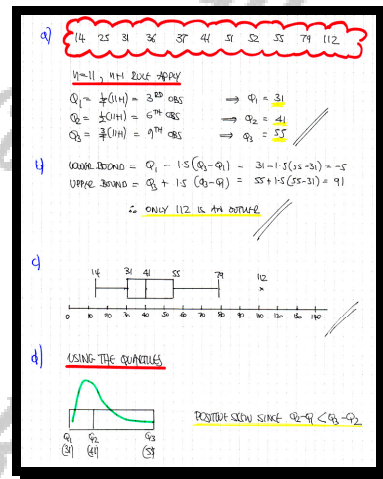 a) 14 25 31 36 37 41 51 52 55 79 112
n=11, n+1 RULE APPLY
Q1 = 1/4(11+1) = 3RD OBS ⟹ Q1 = 31
Q2 = 1/2(11+1) = 6TH OBS ⟹ Q2 = 41
Q3 = 3/4(11+1) = 9TH OBS ⟹ Q3 = 55
b) LOWER BOUND = Q1 - 1.5(Q3-Q1) = 31-1.5(55-31) = -5
UPPER BOUND = Q3 + 1.5(Q3-Q1) = 55+1.5(55-31) = 91
∴ ONLY 112 IS AN OUTLIER
c) 14 31 41 55 79 112
0 10 20 30 40 50 60 70 80 90 100 110 120 130 140
d) USING THE QUARTILES
POSITIVE SKEW SINCE Q2-Q1 < Q3-Q2
Q1 Q2 Q3
(31) (41) (55)